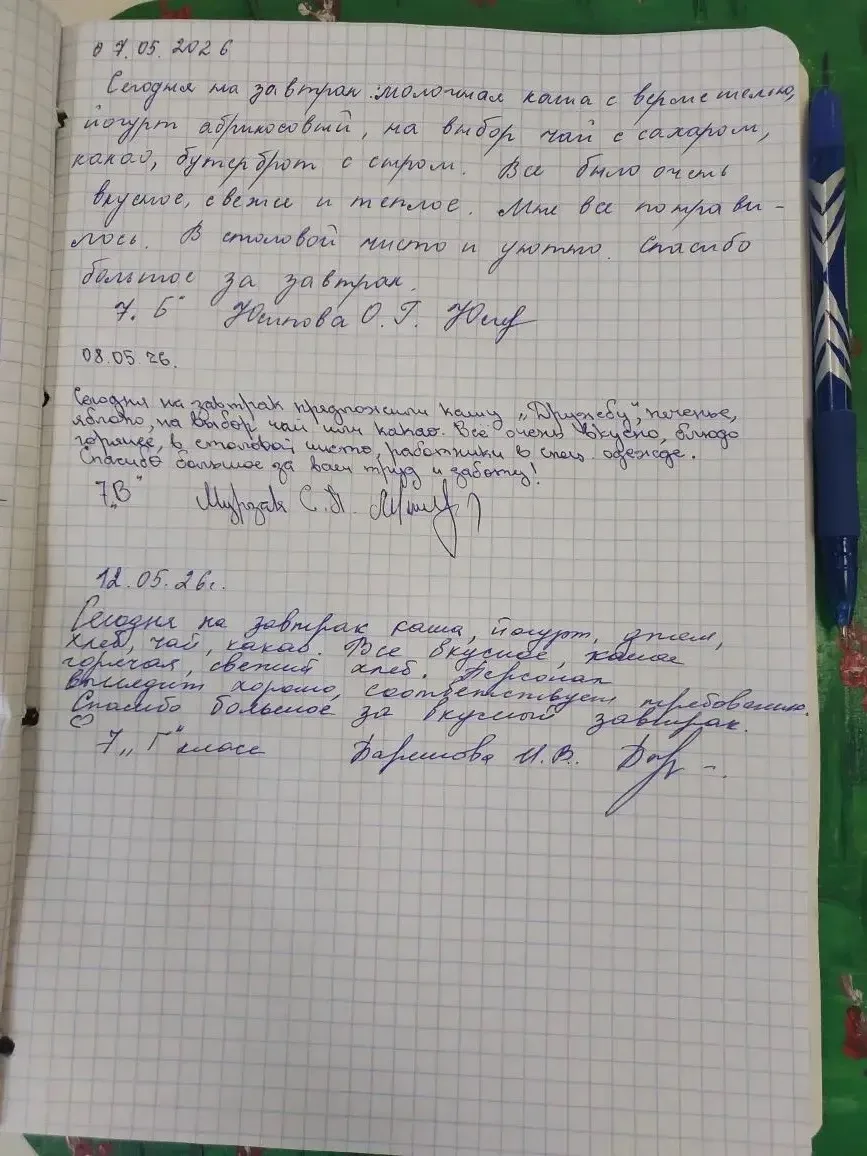 07.05.2026
Сегодня на завтрак молочная каша с вермешелью,
йогурт абрикосовый, на выбор чай с сахаром,
какао, бутерброт с сыром. Все было очень
вкусное, свежее и теплое. Мне все понрави-
лось. В столовой чисто и уютно. Спасибо
большое за завтрак.
7. Б" О.Г.
08.05.26.
Сегодня на завтрак предложили кашу "Дружбу", печенье,
яблоко, на выбор чай или какао. Всё очень вкусно, блюдо
горячее, в столовой чисто, работники в спец. одежде.
Спасибо большое за ваш труд и заботу!
7"В" Мурзак С.П.
12.05.26г.
Сегодня на завтрак каша, йогурт, джем,
хлеб, чай, какао. Все вкусное, каша
горячая, свежий хлеб. Персонал
выглядит хорошо, соответствует требованию.
Спасибо большое за вкусный завтрак.
7 "Г" класс И.В.